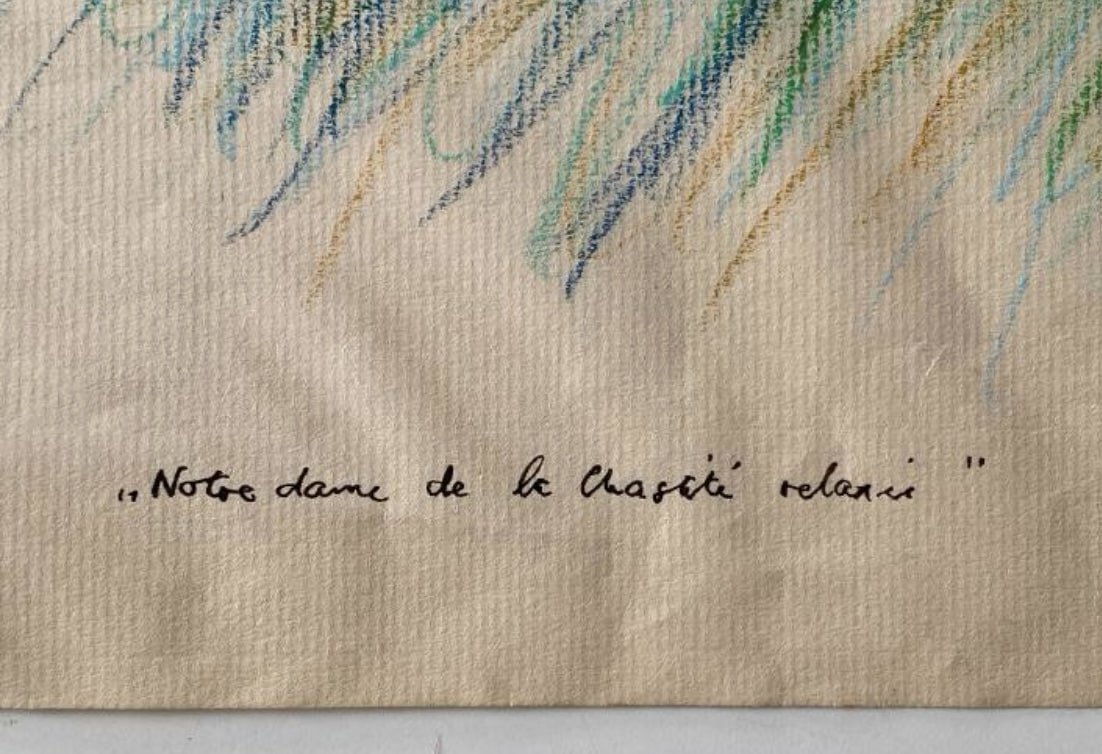 „Notre dame de la Chasteté relaxée"